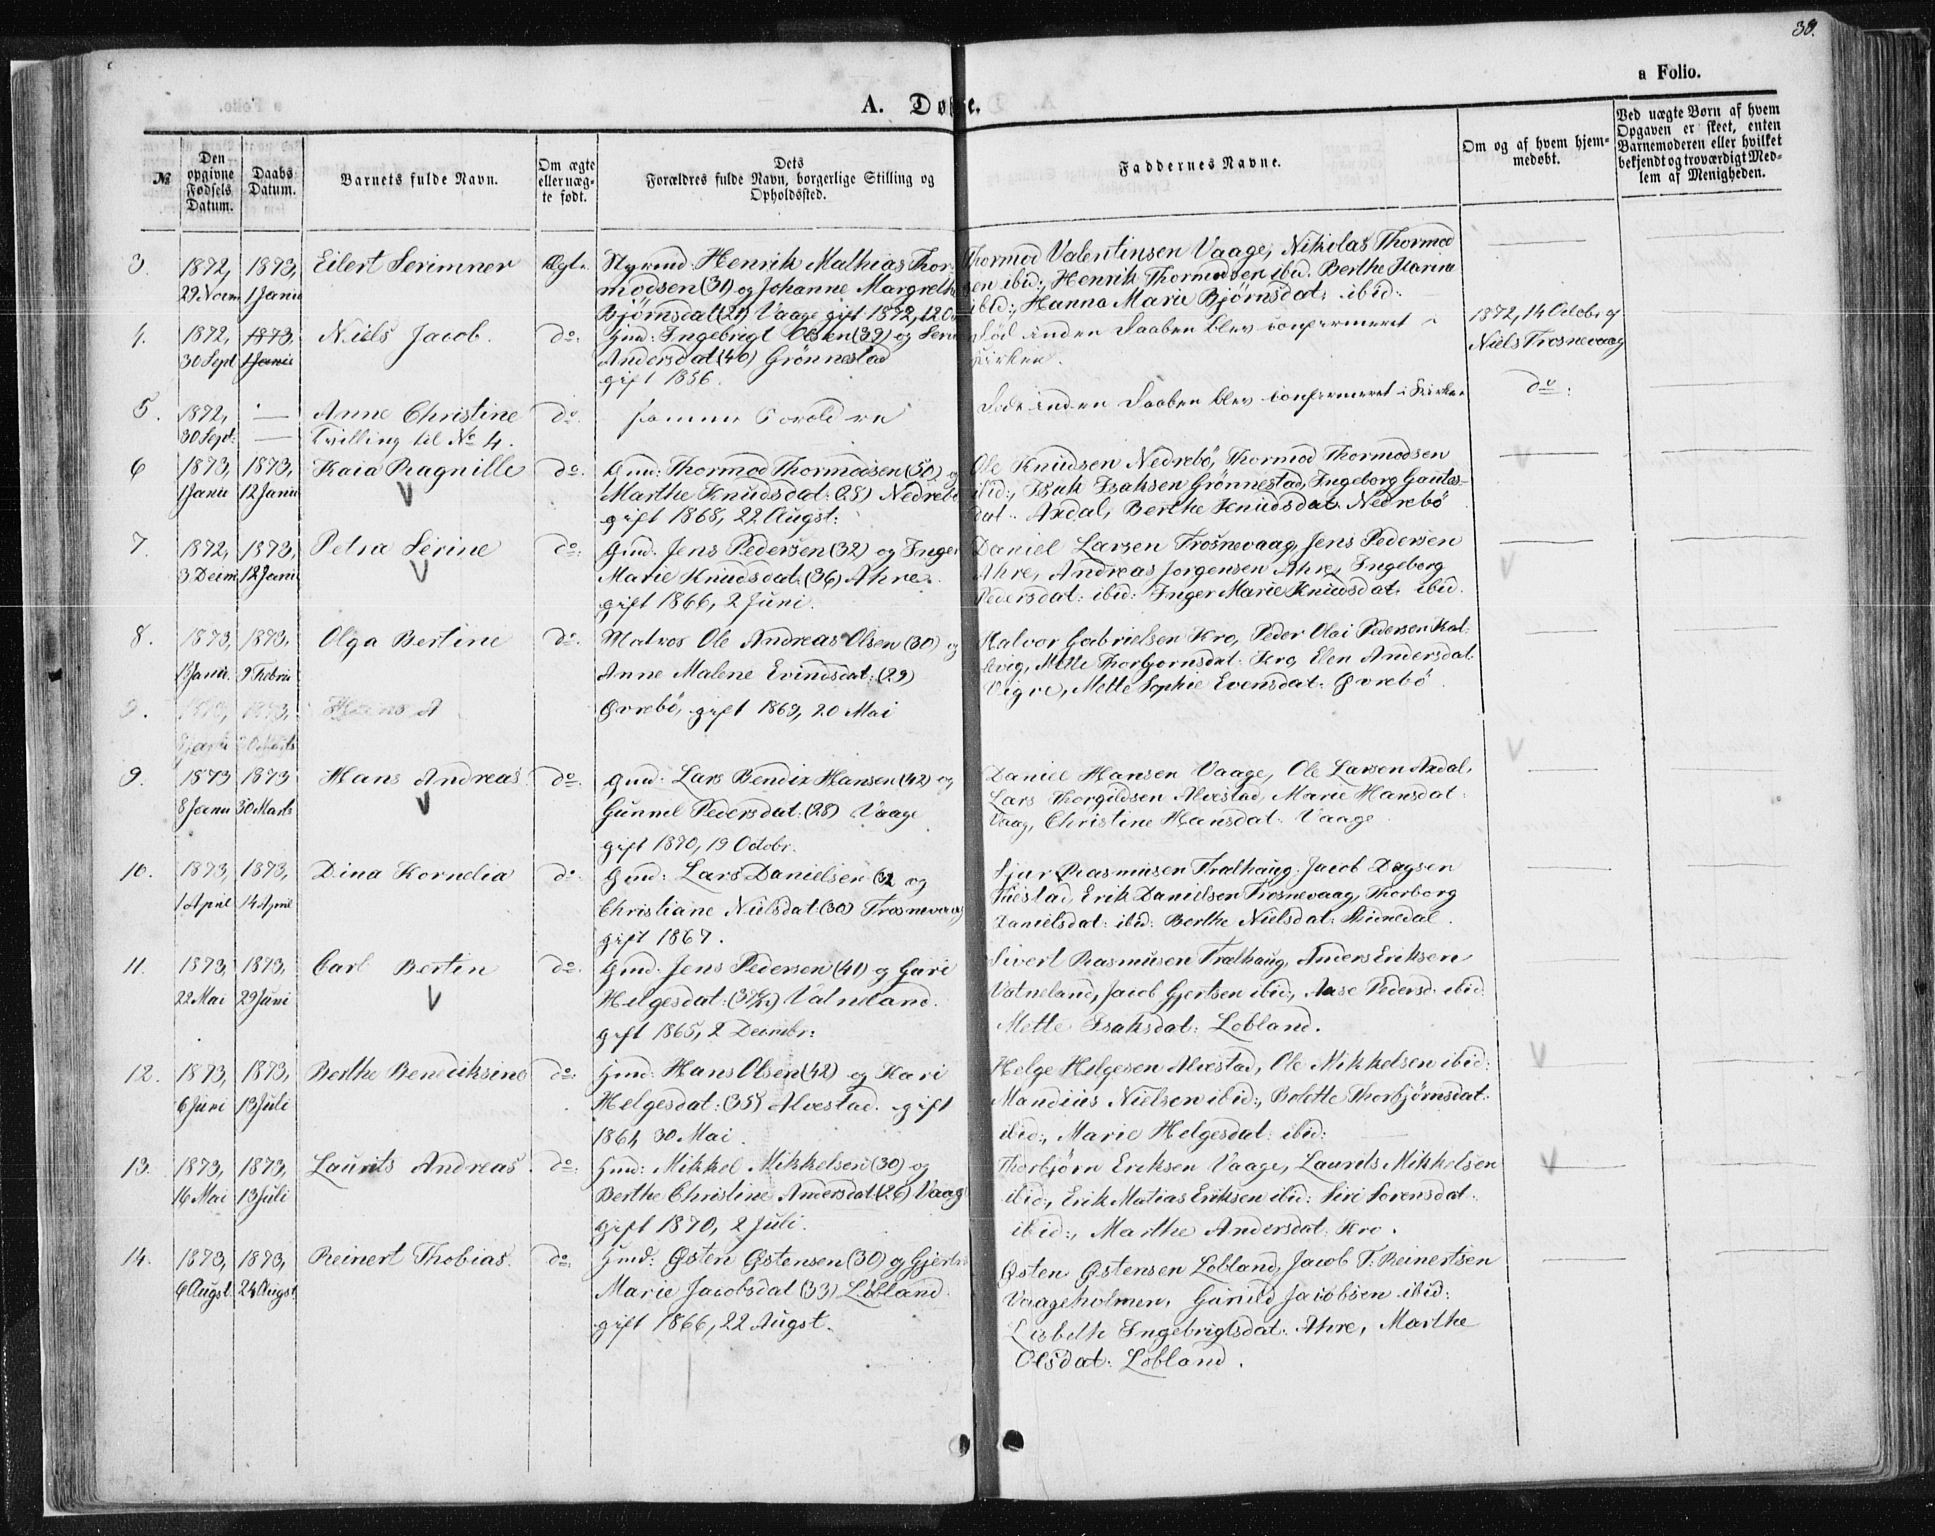 38.
a Folio.
A. Døbte.
№
Den opgivne Fødsels Datum.
Daabs Datum.
Barnets fulde Navn.
Om ægte eller uægte født.
Dets Forældres fulde Navn, borgerlige Stilling og Opholdssted.
Faddernes Navne.
Om og af hvem hjemmedøbt.
Ved uægte Børn af hvem Opgaven er skeet, enten Barnemoderen eller hvilket bekjendt og troværdigt Medlem af Menigheden.
3. 1872, 1873, Eilert Serimner Ægte. Styrmd: Henrik Mathias Thor- Thormod Valentinsen Vaage, Nikolas Thormod
29 Novm 1 Janu modsen (31) og Johanne Margrethe sen ibid:, Henrik Thormodsen ibid: Berthe Karine
Bjørnsdat (21) Vaage gift 1872, 12 Oc ibid:, Hanna Marie Bjørnsdat: ibid:
4. 1872, 1873, Niels Jacob. do: Gmd: Ingebrigt Olsen (39) og Seri Død inden Daaben blev confirmeret i 1872, 14 Octob. af
30 Sept 1 Janu Andersdat (40) Grønnestad Kirken. Niels Trosnevaag
gift 1856.
5. 1872, — Anne Christine do. samme Forældre Døde inden Daaben blev confirmeret i Kirken do:
30 Sept: — Tvilling til No 4.
6 1873, 1873, Kaia Ragnille do: Gmd: Thormod Thormodsen (50) og Ole Knudsen Nedrebø, Thormod Thormodsen
1 Janu 12 Janu Marthe Knudsdat: (28) Nedrebø ibid:, Isak Isaksen Grønnestad, Ingeborg Gautes-
gift 1868, 22 Augst: dat: Axdal, Berthe Knudsdat: Nedrebø
7. 1872, 1873, Petra Serine do: Gmd: Jens Pedersen (32) og Inger Daniel Larsen Trosnevaag, Jens Pedersen
3 Decm 12 Janu Marie Knudsdat: (36) Ahre. Ahre, Andreas Jorgensen Ahre, Ingeborg
gift 1866, 2 Juni. Pedersdat: ibid: Inger Marie Knudsdat: ibid.
8. 1873, 1873, Olga Bertine do: Matros Ole Andreas Olsen (30) og Halvor Gabrielsen Kro, Peder Olai Pedersen Kal-
1 Janu. 9 Febru Anne Malene Evindsdat: (29) levig, Mette Thorbjornsdat: Kro, Elen Andersdat:
Øvrebø, gift 1869, 20 Mai Vigre, Mette Sophie Evensdat: Øvrebø.
9. 1873, 1873, Hans A
8 Janu 30 Marts
9. 1873 1873 Hans Andreas do: Gmd: Lars Bendix Hansen (42) og Daniel Hansen Vaage, Ole Larsen Axdal,
8 Janu 30 Marts Gunnel Pedersdat: (28) Vaage Lars Thorgildsen Alvestad, Marie Hansdat:
gift 1870, 19 Octobr. Vaag, Christine Hansdat: Vaage.
10. 1873, 1873, Dina Kornelia do: Gmd: Lars Danielsen (32 og Sjur Rasmusen Trælhaug, Jacob Dagsen
1 April 14 April Christiane Nielsdat: (30) Trosnevaag Erik Danielsen Trosnevaag, Thorborg
gift 1867. Danielsdat: ibid: Berthe Nielsdat:
11. 1873, 1873, Carl Bertin do: Gmd: Jens Pedersen (41) og Guri Sivert Rasmusen Trælhaug, Anders Eriksen
22 Mai 29 Juni Helgesdat: Vatneland. Vatneland, Jacob Gjertsen ibid:, Aase Pedersd: ibid:
gift 1865, 2 Decmbr: Mette Isaksdat: Lobland.
12. 1873, 1873, Berthe Bendiksine do: Gmd: Hans Olsen (42) og Kari Helge Helgesen Alvestad, Ole Mikkelsen ibid:
6 Juni 13 Juli Helgesdat: (35) Alvestad. gift Mandius Nielsen ibid:, Bolette Thorbjørnsdat:
1864, 30 Mai. ibid:, Marie Helgesdat: ibid:
13. 1873, 1873, Laurits Andreas. do: Gmd: Mikkel Mikkelsen (30) og Thorbjørn Eriksen Vaage, Laurits Mikkelsen
16 Mai 13 Juli Berthe Christine Andersdat: (26) Vaag ibid:, Erik Matias Eriksen ibid: Siri Sorensdat:
gift 1870, 2 Juli. ibid:, Marthe Andersdat: Kro.
14. 1873, 1873, Reinert Thobias. do: Gmd: Østen Østensen (30) og Gjertru Østen Østensen Lobland, Jacob T. Reinertsen
6 Augst 24 Augst Marie Jacobsdat (33) Løbland. Vaageholmen, Jacobsen ibid:
gift 1866, 22 Augst. Lisbeth Ingebrigtsdat: Ahre, Marthe
Olsdat: Lobland.